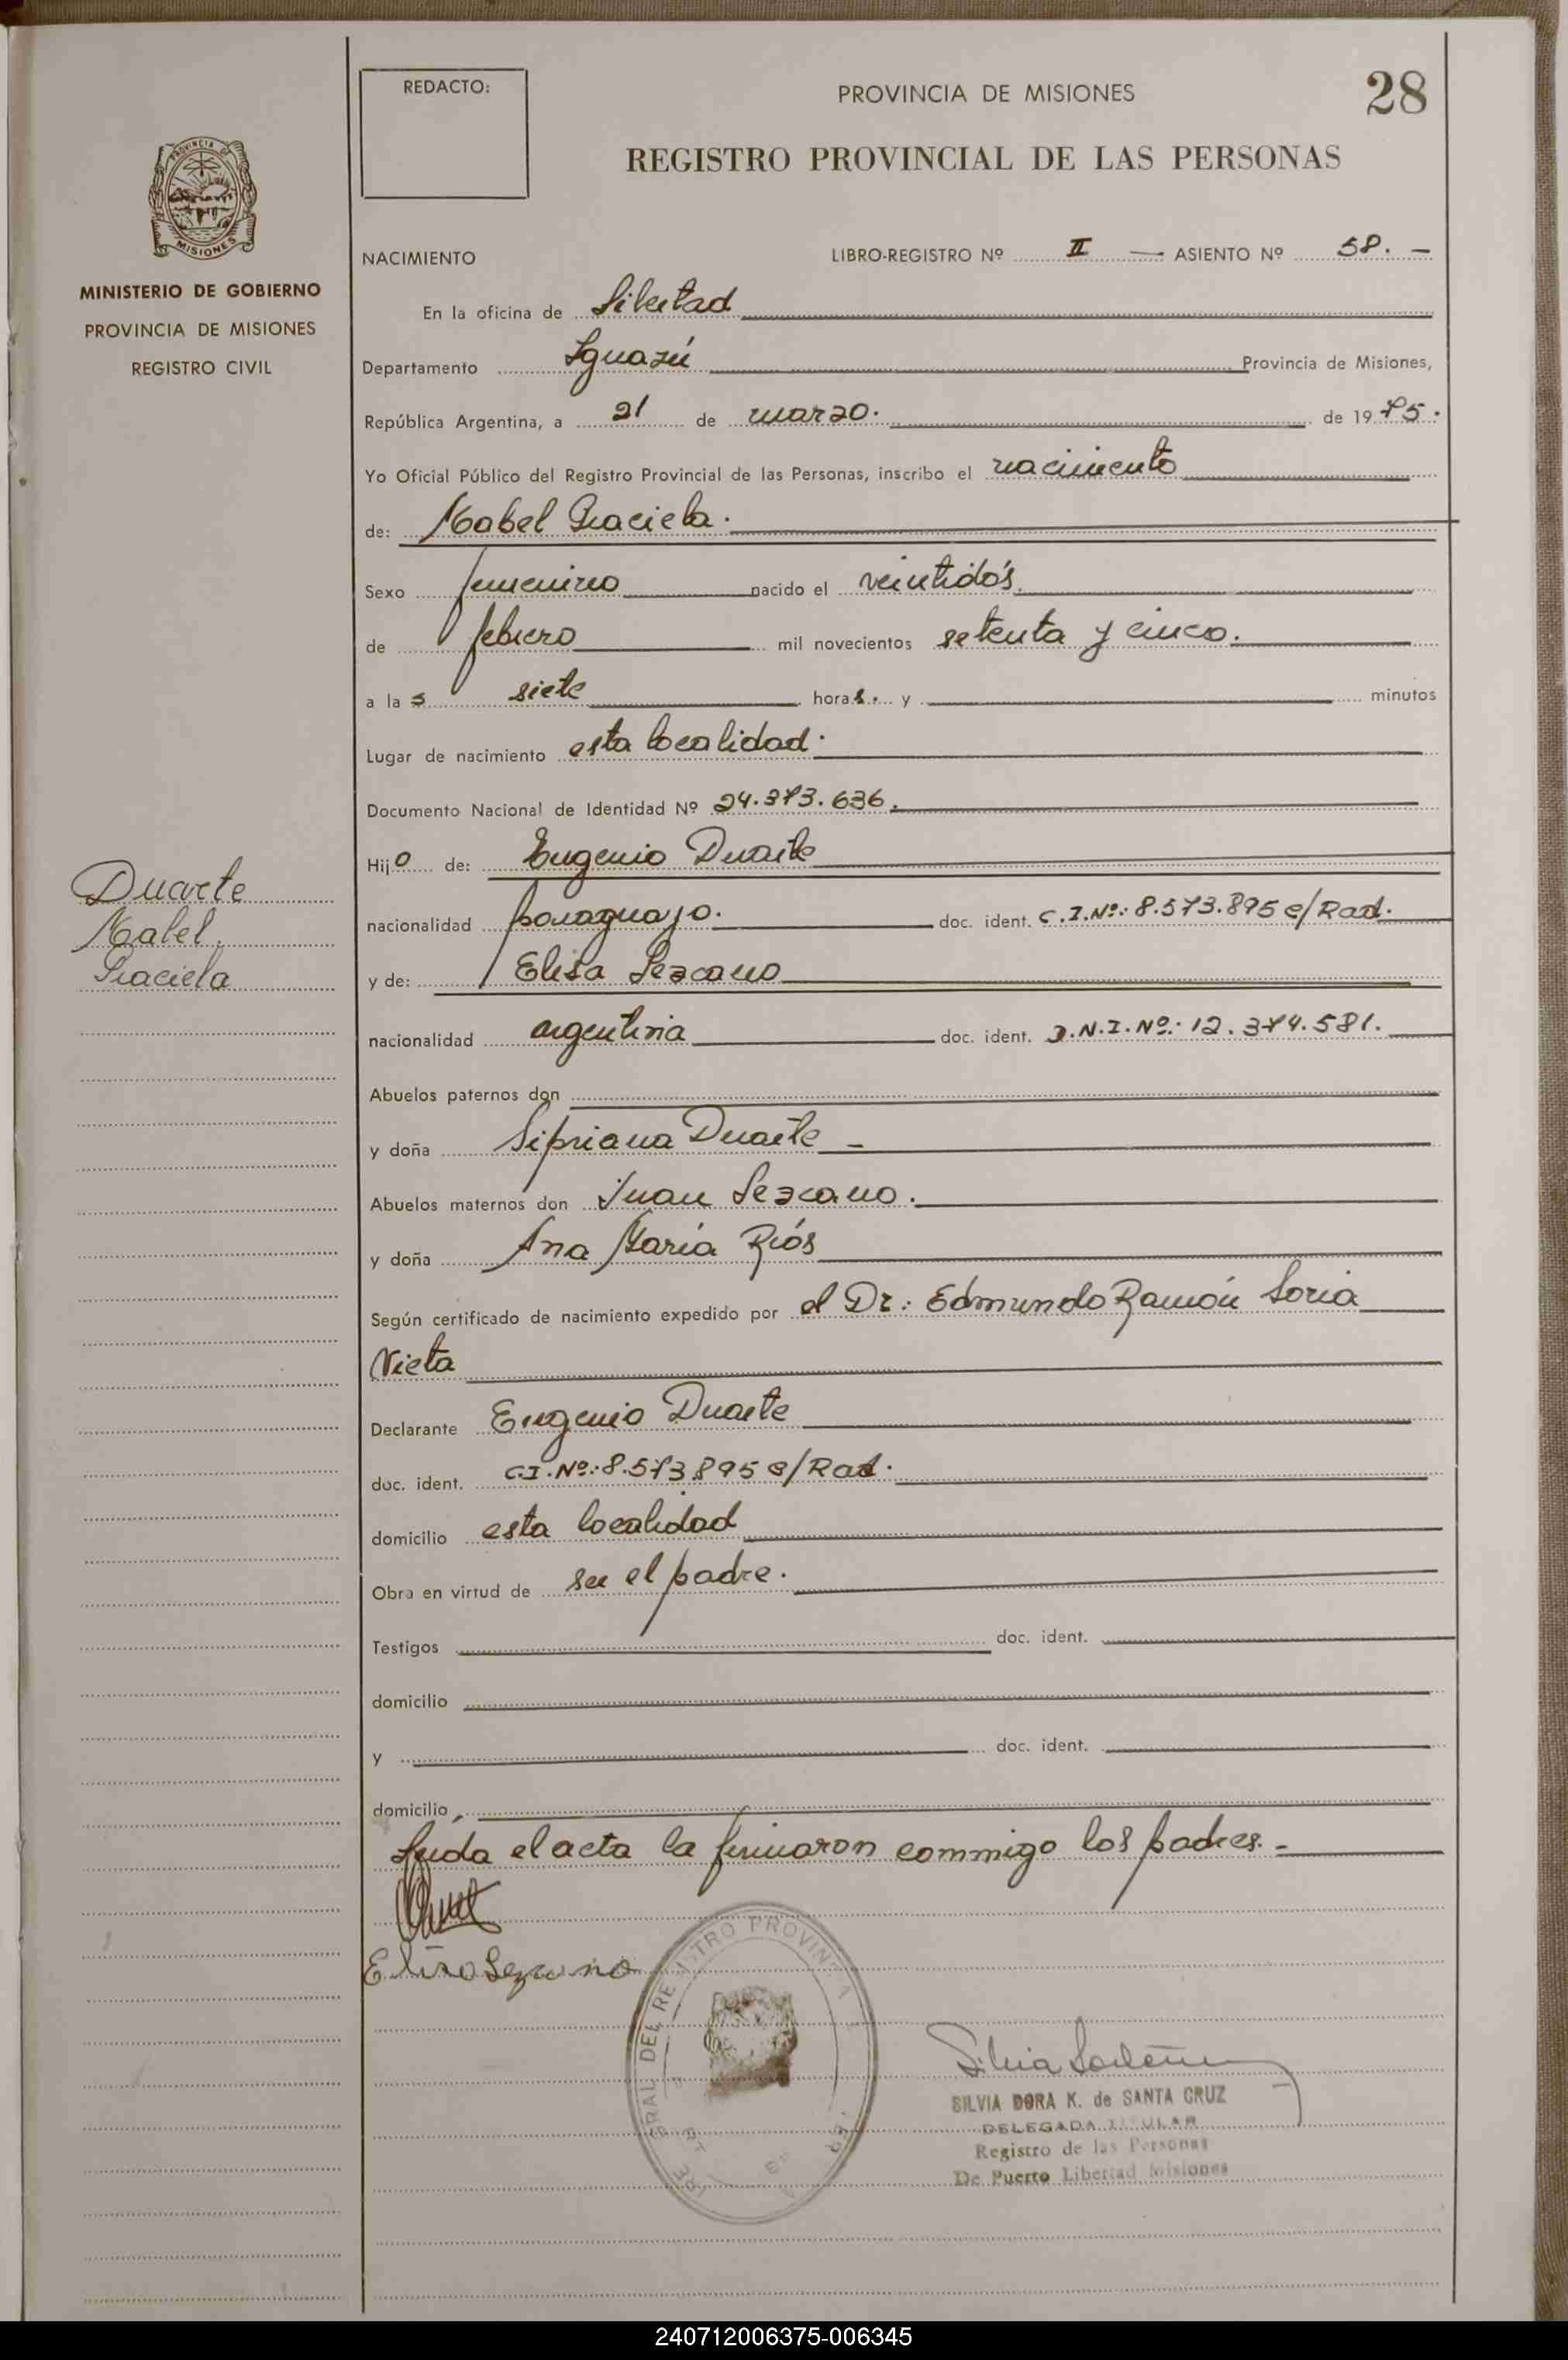 REDACTO:
PROVINCIA DE MISIONES
28
REGISTRO PROVINCIAL DE LAS PERSONAS
PROVINCIA DE
MISIONES
MINISTERIO DE GOBIERNO
PROVINCIA DE MISIONES
REGISTRO CIVIL
NACIMIENTO LIBRO-REGISTRO Nº II — ASIENTO Nº 58. —
En la oficina de Libertad
Departamento Iguazú Provincia de Misiones,
República Argentina, a 21 de marzo. de 1975.
Yo Oficial Público del Registro Provincial de las Personas, inscribo el nacimiento
de: Mabel Graciela.
Sexo femenino nacido el veintidós
de febrero mil novecientos setenta y cinco.
a las siete horas. y minutos
Lugar de nacimiento esta localidad.
Documento Nacional de Identidad Nº 24.373.636.
Hijo de: Eugenio Duarte
Duarte
Mabel
Graciela
nacionalidad paraguayo. doc. ident. C.I.Nº: 8.573.895 c/Rad.
y de: Elisa Lezcano
nacionalidad argentina doc. ident. D.N.I.Nº: 12.374.581.
Abuelos paternos don
y doña Sipriana Duarte —
Abuelos maternos don Juan Lezcano.
y doña Ana María Riós
Según certificado de nacimiento expedido por el Dr: Edmundo Ramón Soria
Vieta
Declarante Eugenio Duarte
doc. ident. C.I.Nº: 8.573.895 c/Rad.
domicilio esta localidad
Obra en virtud de ser el padre.
Testigos doc. ident.
domicilio
y doc. ident.
domicilio
Leida el acta la firmaron commigo los padres. —
Elisa Lezcano
SILVIA DORA K. de SANTA CRUZ
DELEGADA TITULAR
Registro de las Personas
De Puerto Libertad Misiones
240712006375-006345